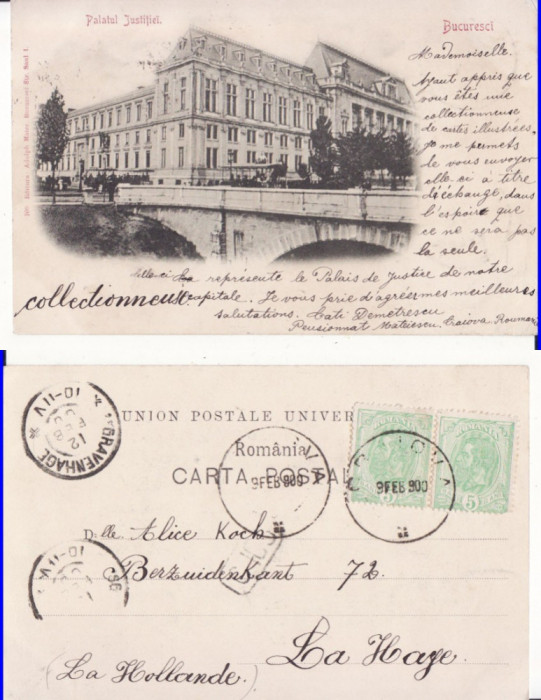 Palatul Justiției.
Bucuresci
Mademoiselle.
Ayant appris que
vous êtes une
collectionneuse
de cartes illustrées,
je me permets
de vous envoyer
elle-ci à titre
d'échange, dans
l'espoir que
ce ne sera pas
la seule.
Elle-ci représente le Palais de Justice de notre
capitale. Je vous prie d'agréer mes meilleures
salutations. Cati Demetrescu
Pensionnat Mateescu. Craiova. Rouman
collectionneur
UNION POSTALE UNIVER
România
CARTA POSTAL
9 FEB 900
CRAIOVA
9 FEB 900
5
5
'SGRAVENHAGE
12
FEB
10-11V
10-11V
D:lle Alice Koch
Berzuidenkant 72.
La Haye.
(La Hollande.)